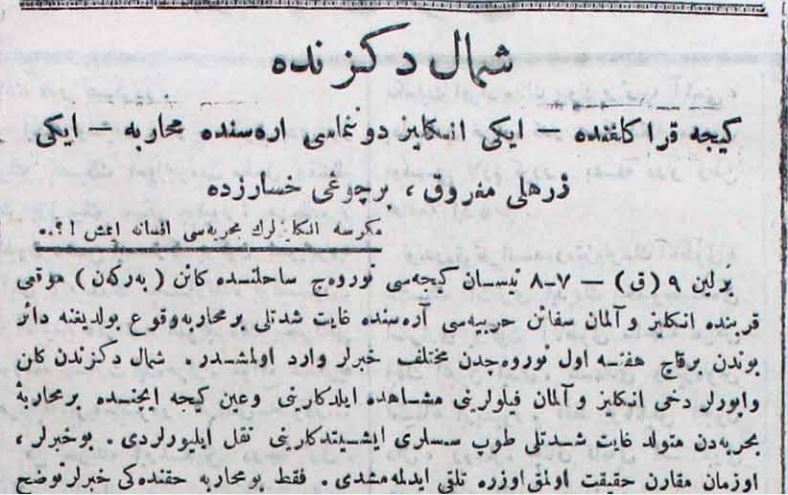 شمال دكزنده
كیجه قراكلغنده — ایكی انكلیز دونمامی اره‌سنده محاربه — ایكی
زرهلی مغروق ، برچوغی خسارزده
مكرسه انكلیزلرك بحریه‌سی افسانه ایمش !؟..
برلین ۹ (ق) — ۷-۸ نیسان كیجه‌سی نوروەج ساحلنده كائن (به‌ركەن) موقعی
قربنده انكلیز وآلمان سفائن حربیه‌سی آره‌سنده غایت شدتلی بر محاربه وقوع بولدیغنه دائر
بوندن برقاچ هفته اول نوروەجدن مختلف خبرلر وارد اولمشدر . شمال دكزندن كلن
واپورلر دخی انكلیز وآلمان فیلولرینی مشاهده ایلدكلرینی وعین كیجه ایچنده برمحاربهٔ
بحریه‌دن متولد غایت شدتلی طوب سسلری ایشیتدكلرینی نقل ایلیورلردی . بوخبرلر ،
اوزمان مقارن حقیقت اولمق اوزره تلقی ایدلمه‌مشدی . فقط بومحاربه حقنده‌كی خبرلر توضح